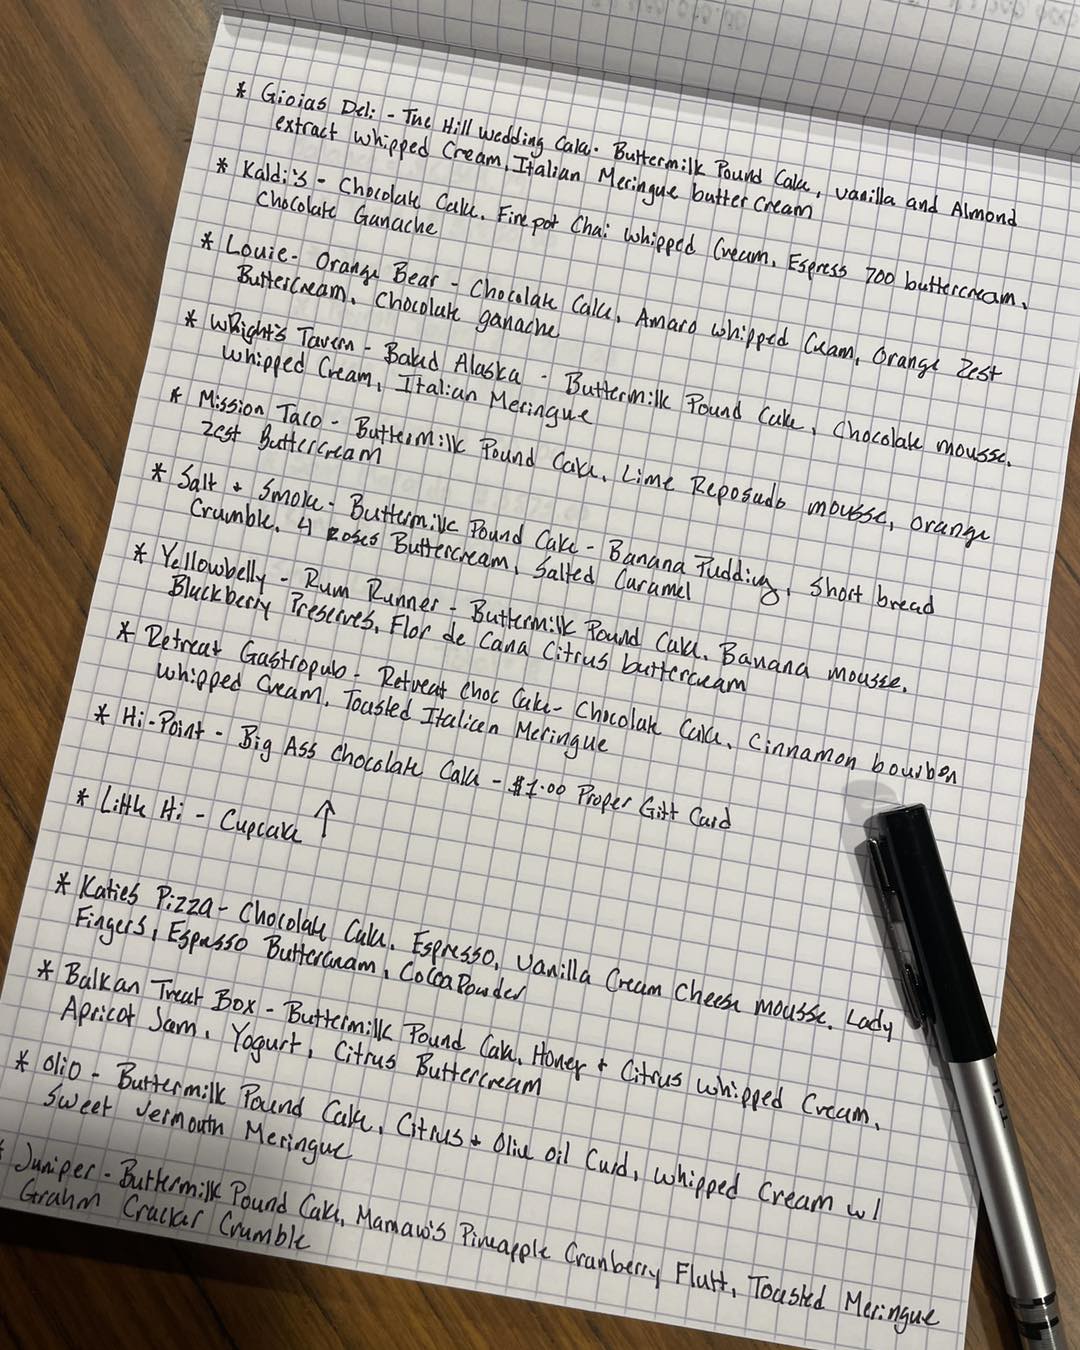 * Gioias Deli - The Hill Wedding Cake. Buttermilk Pound Cake, vanilla and Almond
extract whipped Cream, Italian Meringue butter cream
* Kaldi's - Chocolate Cake. Firepot Chai whipped Cream. Espress 700 buttercream.
Chocolate Ganache
* Louie - Orange Bear - Chocolate Cake. Amaro whipped Cream, Orange Zest
Buttercream. Chocolate ganache
* Wright's Tavern - Baked Alaska - Buttermilk Pound Cake, Chocolate mousse.
Whipped Cream, Italian Meringue
* Mission Taco - Buttermilk Pound Cake. Lime Reposado mousse, orange
Zest Buttercream
* Salt + Smoke - Buttermilk Pound Cake - Banana Pudding, Short bread
Crumble. 4 Roses Buttercream, Salted Caramel
* Yellowbelly - Rum Runner - Buttermilk Pound Cake. Banana mousse.
Blackberry Preserves. Flor de Cana Citrus buttercream
* Retreat Gastropub - Retreat Choc Cake - Chocolate Cake. Cinnamon bourbon
Whipped Cream. Toasted Italian Meringue
* Hi-Point - Big Ass Chocolate Cake - $1.00 Proper Gift Card
* Little Hi - Cupcake ↑
* Katies Pizza - Chocolate Cake. Espresso, Vanilla Cream Cheese mousse. Lady
Fingers, Espresso Buttercream, Cocoa Powder
* Balkan Treat Box - Buttermilk Pound Cake. Honey + Citrus whipped Cream.
Apricot Jam. Yogurt, Citrus Buttercream
* Olio - Buttermilk Pound Cake, Citrus + Olive oil Curd, whipped Cream w/
Sweet Vermouth Meringue
* Juniper - Buttermilk Pound Cake, Mamaw's Pineapple Cranberry Fluff, Toasted Meringue
Grahm Cracker Crumble